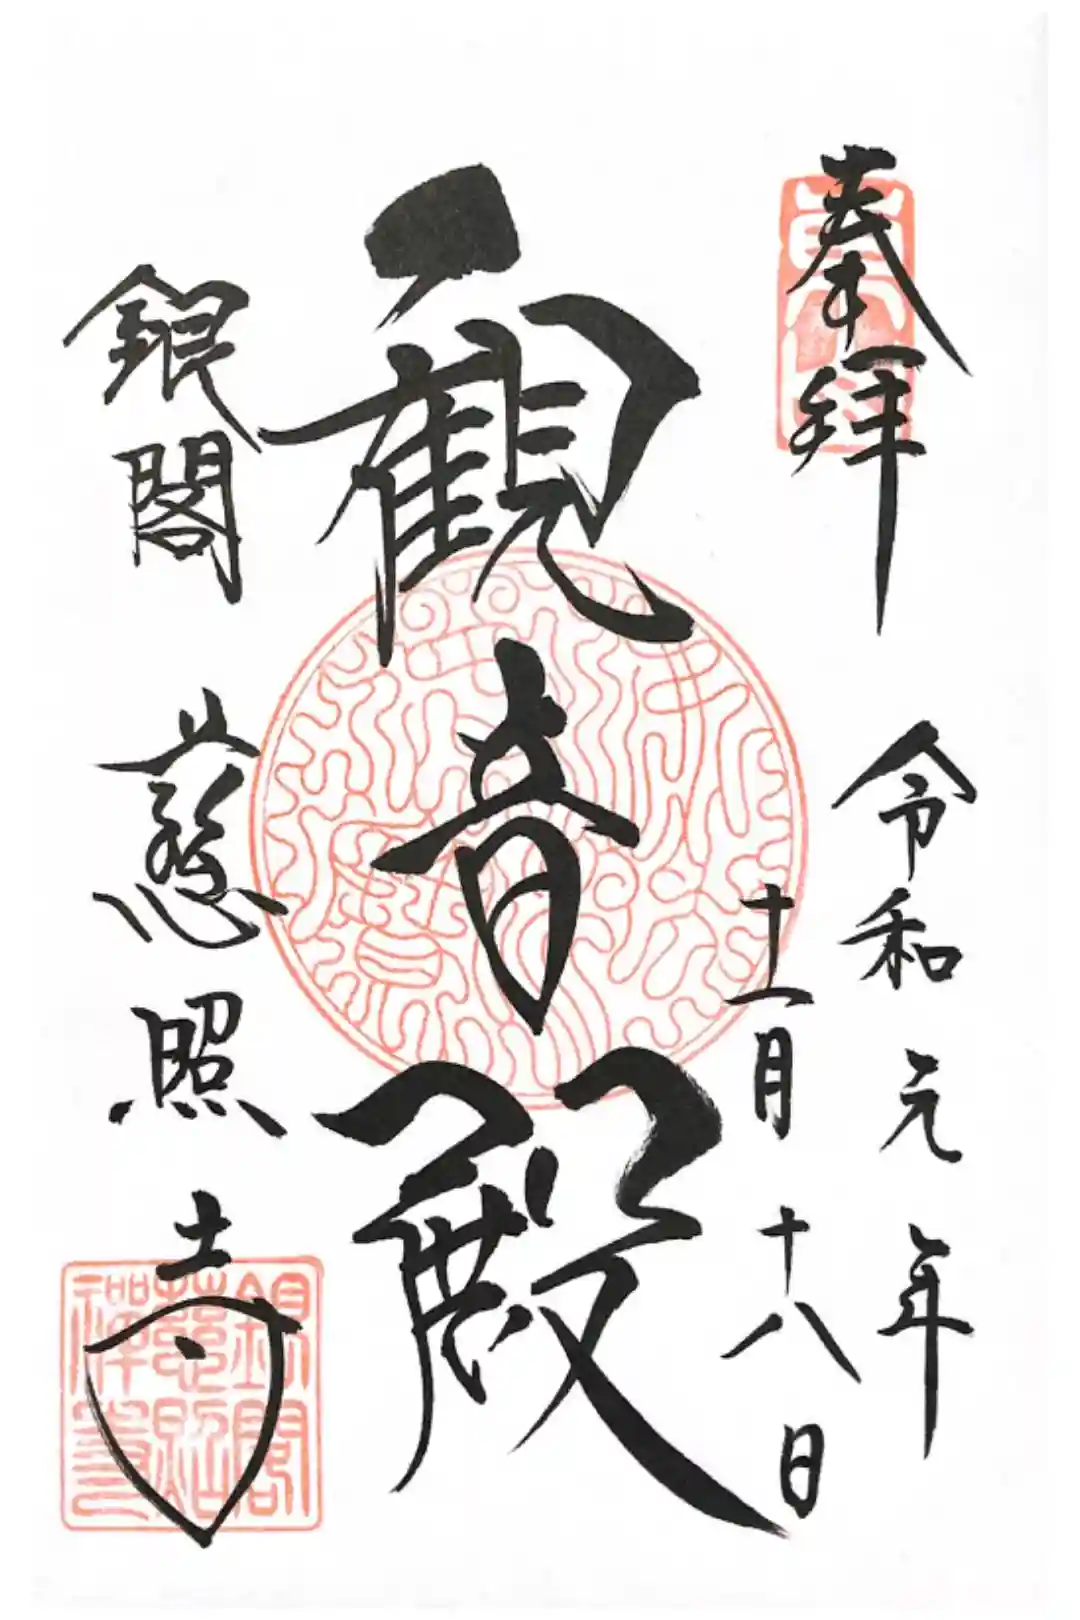 奉拝
令和元年
十一月十八日
観音殿
銀閣慈照寺
銀閣
慈照
禅寺